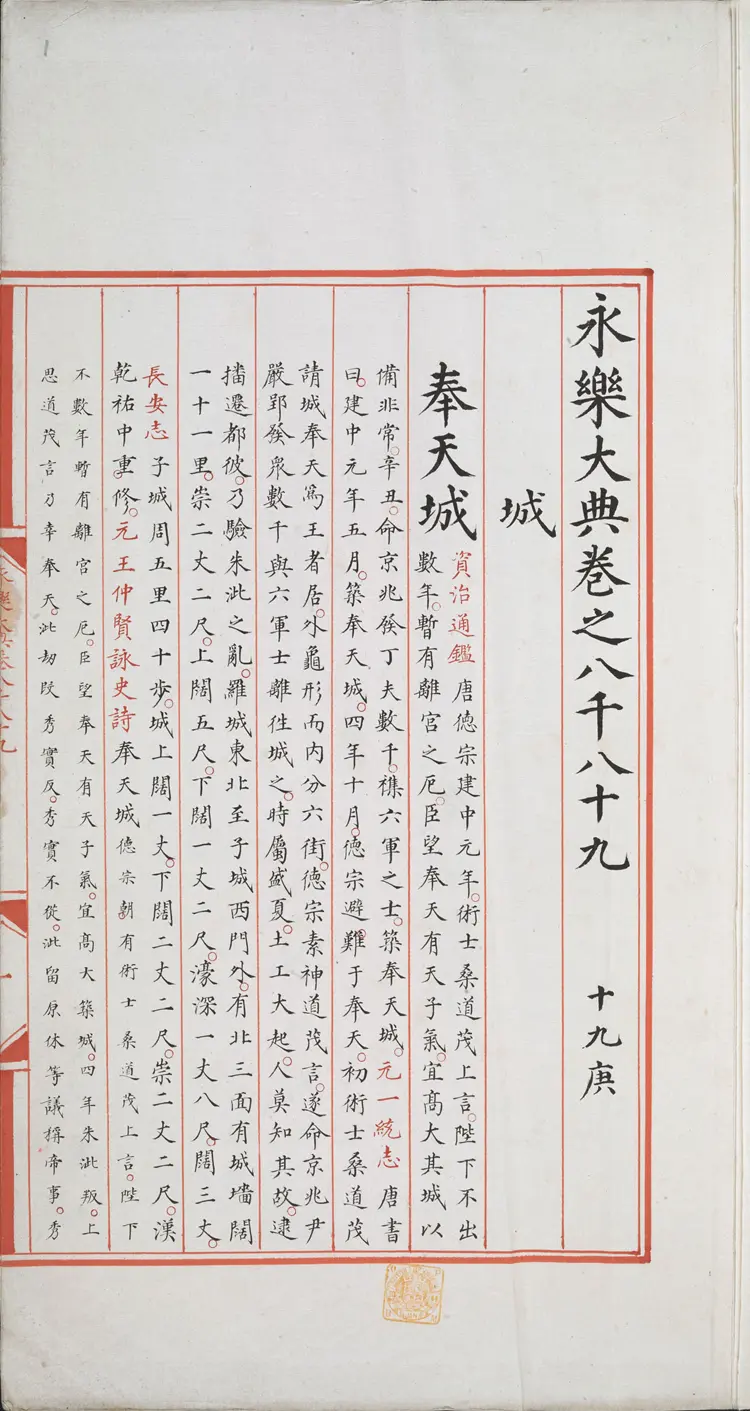 永樂大典卷之八千八十九 十九庚
城
奉天城
資治通鑑唐德宗建中元年。術士桑道茂上言。陛下不出
數年。暫有離宮之厄。臣望奉天有天子氣。宜高大其城以
備非常。辛丑。命京兆發丁夫數千。襍六軍之士。築奉天城。元一統志唐書
曰。建中元年五月。築奉天城。四年十月。德宗避難于奉天。初術士桑道茂
請城奉天爲王者居。外龜形而内分六街。德宗素神道茂言。遂命京兆尹
嚴郢發衆數千與六軍士離徃城之。時屬盛夏。土工大起。人莫知其故。逮
播遷都彼。乃驗朱泚之亂。羅城東北至子城西門外。有北三面有城墻闊
一十一里。崇二丈二尺。上闊五尺。下闊一丈二尺。濠深一丈八尺。闊三丈。
長安志子城周五里四十步。城上闊一丈。下闊二丈二尺。崇二丈二尺。漢
乾祐中重修。元王仲賢詠史詩奉天城德宗朝。有術士桑道茂上言。陛下
不數年暫有離宮之厄。臣望奉天有天子氣。宜高大築城。四年朱泚叛。上
思道茂言乃幸奉天。泚劫段秀實反。秀實不從。泚留原休等議稱帝事。秀